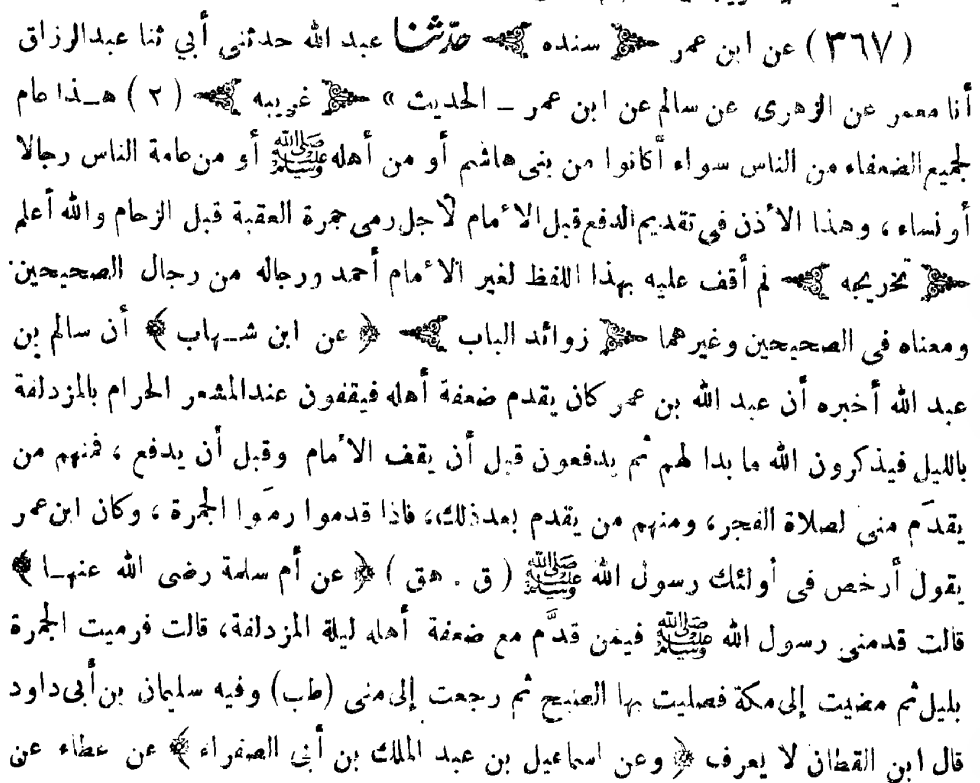 (٣٦٧) عن ابن عمر ﴿ سنده ﴾ حدّثنا عبد الله حدثنى أبي ثنا عبدالرزاق
أنا معمر عن الزهرى عن سالم عن ابن عمر ــ الحديث » ﴿ غريبه ﴾ (٢) هـذا عام
لجميع الضعفاء من الناس سواء أكانوا من بنى هاشم أو من أهله ﷺ أو من عامة الناس رجالا
أو نساء، وهذا الأذن فى تقديم الدفع قبل الأمام لأجل رمى جمرة العقبة قبل الزحام والله أعلم
﴿ تخريجه ﴾ لم أقف عليه بهذا اللفظ لغير الأمام أحمد ورجاله من رجال الصحيحين
ومعناه فى الصحيحين وغيرهما ﴿ زوائد الباب ﴾ ﴿ عن ابن شـهاب ﴾ أن سالم بن
عبد الله أخبره أن عبد الله بن عمر كان يقدم ضعفة أهله فيقفون عندالمشعر الحرام بالمزدلفة
بالليل فيذكرون الله ما بدا لهم ثم يدفعون قبل أن يقف الأمام وقبل أن يدفع، فمنهم من
يقدَم منى لصلاة الفجر، ومنهم من يقدم بعدذلك، فاذا قدموا رمَوا الجمرة، وكان ابن عمر
يقول أرخص فى أولئك رسول الله ﷺ (ق . هق) ﴿ عن أم سلمة رضى الله عنهـا ﴾
قالت قدمنى رسول الله ﷺ فيمن قدَّم مع ضعفة أهله ليلة المزدلفة، قالت فرميت الجمرة
بليل ثم مضيت إلى مكة فصليت بها الصبح ثم رجعت إلى منى (طب) وفيه سليمان بن أبى داود
قال ابن القطان لا يعرف ﴿ وعن اسماعيل بن عبد الملك بن أبى الصفراء ﴾ عن عطاء عن